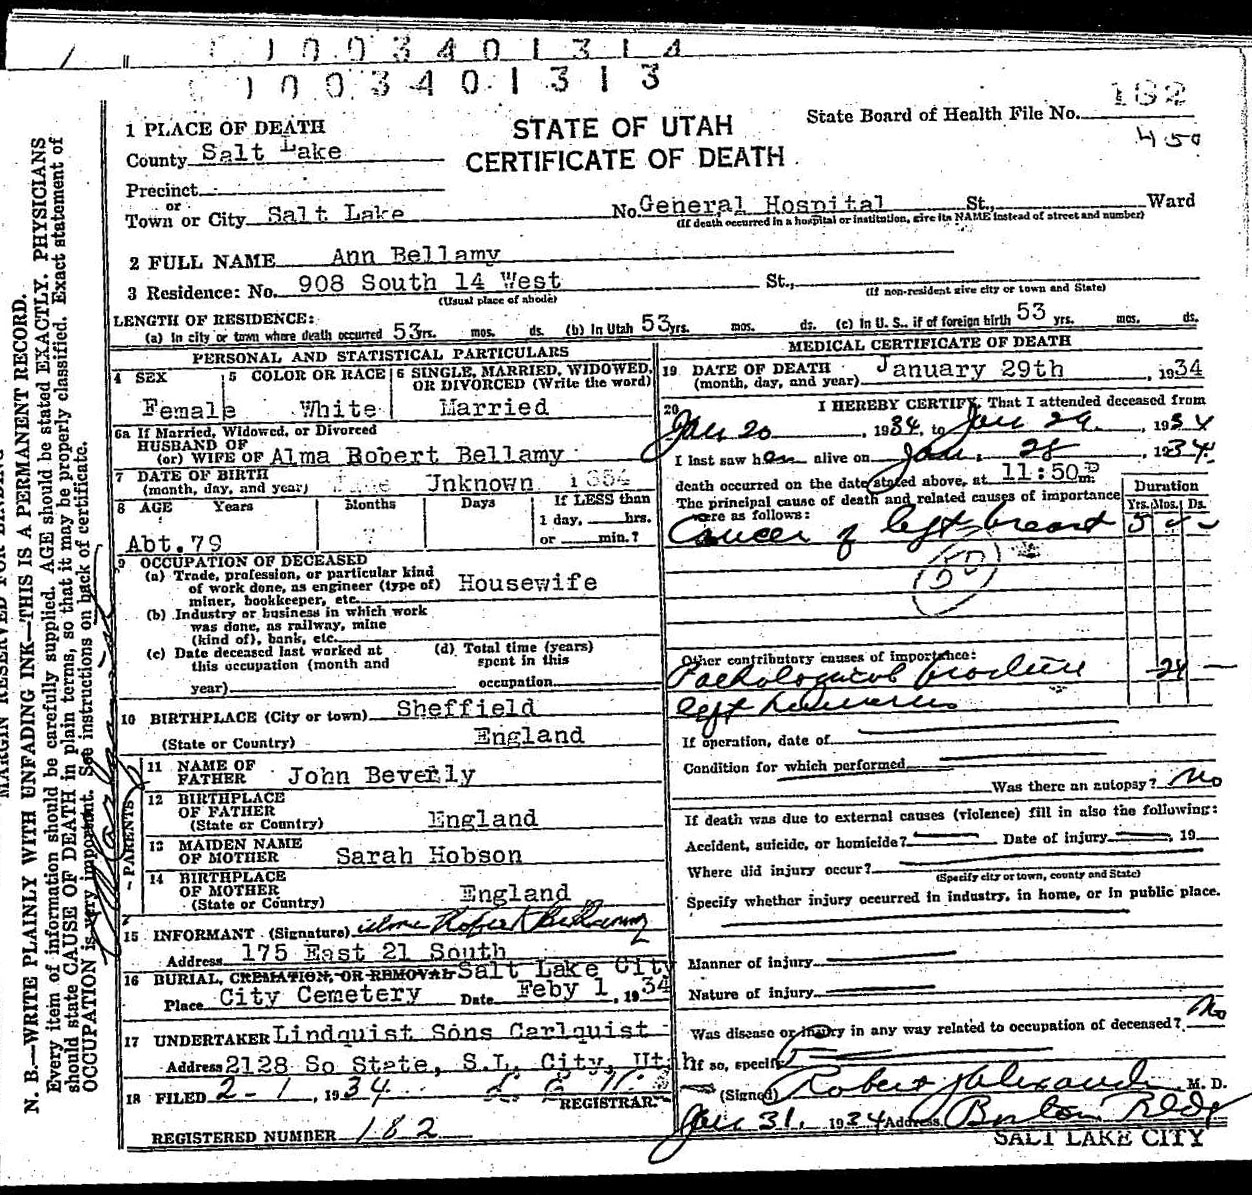 1003401314
1003401313
State Board of Health File No. 182
450
STATE OF UTAH
CERTIFICATE OF DEATH
1 PLACE OF DEATH
County Salt Lake
Precinct
or
Town or City Salt Lake No. General Hospital St., Ward
(If death occurred in a hospital or institution, give its NAME instead of street and number)
2 FULL NAME Ann Bellamy
3 Residence: No. 908 South 14 West St.,
(Usual place of abode) (If non-resident give city or town and State)
LENGTH OF RESIDENCE:
(a) In city or town where death occurred 53 yrs. mos. ds. (b) In Utah 53 yrs. mos. ds. (c) In U. S., if of foreign birth 53 yrs. mos. ds.
PERSONAL AND STATISTICAL PARTICULARS
4 SEX Female
5 COLOR OR RACE White
6 SINGLE, MARRIED, WIDOWED, OR DIVORCED (Write the word)
Married
6a If Married, Widowed, or Divorced
HUSBAND OF
(or) WIFE OF Alma Robert Bellamy
7 DATE OF BIRTH
(month, day, and year) Unknown 1854
8 AGE Years Months Days If LESS than
1 day, hrs.
or min.?
Abt. 79
9 OCCUPATION OF DECEASED
(a) Trade, profession, or particular kind
of work done, as engineer (type of)
miner, bookkeeper, etc. Housewife
(b) Industry or business in which work
was done, as railway, mine
(kind of), bank, etc.
(c) Date deceased last worked at
this occupation (month and
year)
(d) Total time (years)
spent in this
occupation
10 BIRTHPLACE (City or town) Sheffield
(State or Country) England
PARENTS
11 NAME OF
FATHER John Beverly
12 BIRTHPLACE
OF FATHER
(State or Country) England
13 MAIDEN NAME
OF MOTHER Sarah Hobson
14 BIRTHPLACE
OF MOTHER
(State or Country) England
15 INFORMANT (Signature) Alma Robert Bellamy
Address 175 East 21 South
16 BURIAL, CREMATION, OR REMOVAL Salt Lake City
Place City Cemetery Date Feby 1, 1934
17 UNDERTAKER Lindquist Sons Carlquist
Address 2128 So State, S.L. City, Utah
18 FILED 2-1, 1934
REGISTRAR.
REGISTERED NUMBER 182
MEDICAL CERTIFICATE OF DEATH
19 DATE OF DEATH
(month, day, and year) January 29th, 1934
20 I HEREBY CERTIFY, That I attended deceased from
Jan 20, 1934, to Jan 29, 1934
I last saw her alive on Jan. 28 1934.
death occurred on the date stated above, at 11:50 P m.
The principal cause of death and related causes of importance
were as follows:
Duration
Yrs. Mos. Ds.
Cancer of left breast 5 - -
50
Other contributory causes of importance:
Pathological fracture - 24 -
left humerus
If operation, date of
Condition for which performed
Was there an autopsy? No
If death was due to external causes (violence) fill in also the following:
Accident, suicide, or homicide? Date of injury , 19
Where did injury occur?
(Specify city or town, county and State)
Specify whether injury occurred in industry, in home, or in public place.
Manner of injury
Nature of injury
Was disease or injury in any way related to occupation of deceased? No
If so, specify
(Signed) Robert J Alexander M. D.
Jan 31, 1934 Address Boston Bldg
SALT LAKE CITY
MARGIN RESERVED FOR BINDING
N. B.—WRITE PLAINLY WITH UNFADING INK—THIS IS A PERMANENT RECORD.
Every item of information should be carefully supplied. AGE should be stated EXACTLY. PHYSICIANS
should state CAUSE OF DEATH in plain terms, so that it may be properly classified. Exact statement of
OCCUPATION is very important. See instructions on back of certificate.